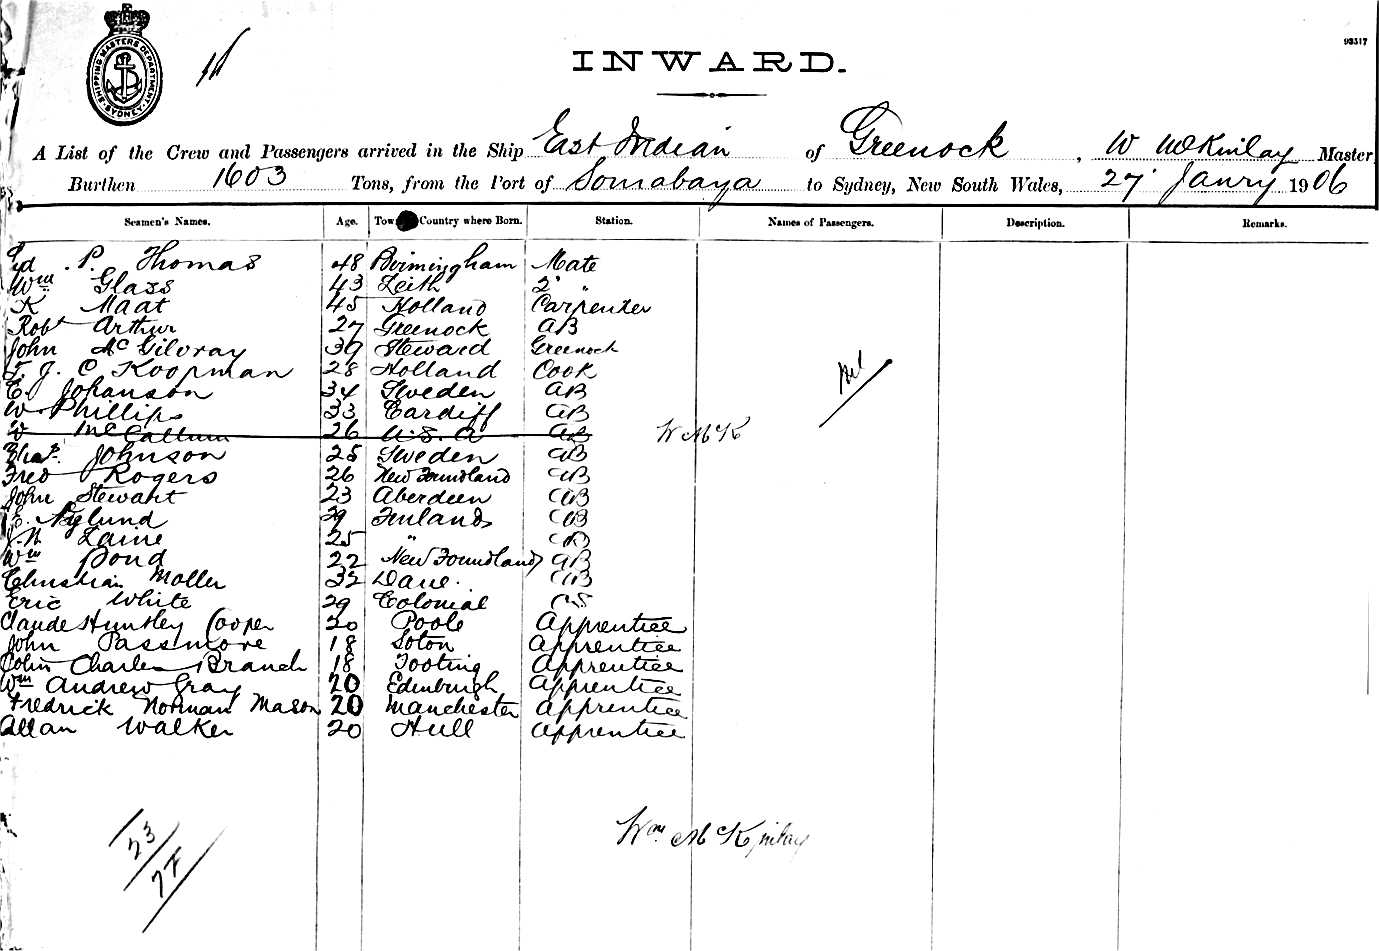 SHIPPING MASTERS DEPARTMENT
SYDNEY
93517
INWARD.
A List of the Crew and Passengers arrived in the Ship East Indian of Greenock, W McKinlay Master
Burthen 1603 Tons, from the Port of Somabaya to Sydney, New South Wales, 27 Janry 1906
Seamen's Names. Age. Country where Born. Station. Names of Passengers. Description. Remarks.
P. Thomas 48 Birmingham Mate
Wm Glass 43 Leith 2 "
K Maat 45 Holland Carpenter
Robt Arthur 27 Greenock AB
John McGilvray 39 Steward Greenock
T. J. C Koopman 28 Holland Cook
E. Johanson 34 Sweden AB
W Phillips 33 Cardiff AB
W McCallum 26 U.S.A AB W McK
Chas. Johnson 25 Sweden AB
Fred Rogers 26 New Foundland AB
John Stewart 23 Aberdeen AB
E. Nylund 29 Finland AB
J.N Laine 25 " AB
Wm Pond 22 New Foundland AB
Christian Moller 32 Dane. AB
Eric White 29 Colonial OS
Claude Huntley Cooper 20 Poole Apprentice
John Passmore 18 Soton Apprentice
Colin Charles Branch 18 Tooting Apprentice
Wm Andrew Gray 20 Edinburgh Apprentice
Fredrick Norman Mason 20 Manchester Apprentice
Allan Walker 20 Hull Apprentice
Nil
Wm McKinlay
23